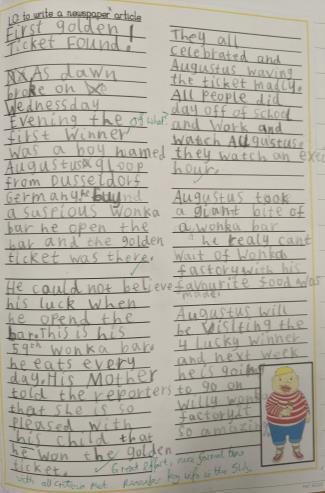 LO to write a newspaper article
First golden
Ticket Found!
As dawn
broke on
Wednesday
Evening the of what?
first winner
was a boy named
Augustus gloop
from Dusseldorf
Germany he buy
a suspious Wonka
bar he open the
bar and the golden
ticket was there.
He could not believe
his luck when
he opend the
bar. This is his
59th Wonka bar.
he eats every
day. His Mother
told the reporters
that she is so
pleased with
his child that
he won the golden
ticket.
They all
celebrated and
Augustus waving
the ticket madly.
All people did
day off of school
and work and
watch Augustus.
they watch an
hour.
Augustus took
a giant bite of
a wonka bar
he realy cant
wait of Wonka
factory with his
favourite food was
made.
Augustus will
be visiting the
4 lucky winner
and next week
he is going
to go on
Willy wonka
factory it
so amazing
Great effort, nice journal tone
with all criteria met. Remember key info is the 5Ws